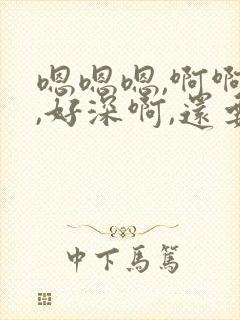 嗯嗯嗯,啊啊
,好深啊,還
中下馬篤